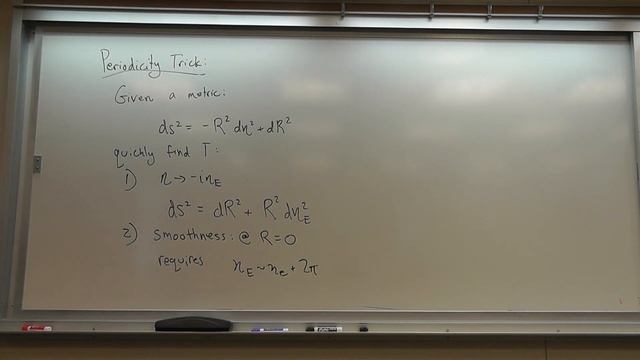 Periodicity Trick:
Given a metric:
ds² = -R² dη² + dR²
quickly find T:
1) η → -iη_E
ds² = dR² + R² dη_E²
2) Smoothness: @ R=0
requires η_E ~ η_e + 2π